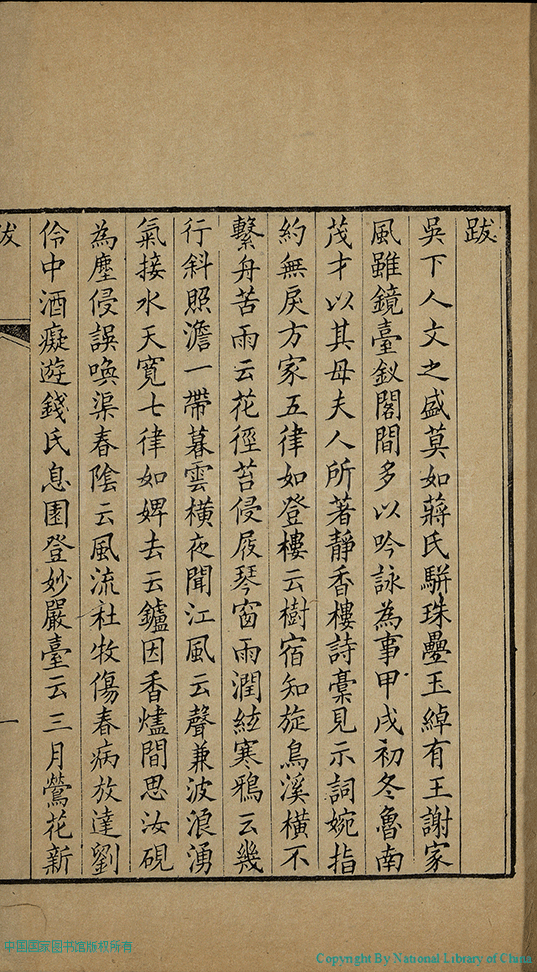 跋
吳下人文之盛莫如蔣氏駢珠疊玉綽有王謝家
風雖鏡臺釵閣間多以吟詠為事甲戌初冬魯南
茂才以其母夫人所著靜香樓詩稾見示詞婉指
約無戾方家五律如登樓云樹宿知旋鳥溪橫不
繫舟苦雨云花徑苔侵屐琴窗雨潤絃寒鴉云幾
行斜照澹一帶暮雲橫夜聞江風云聲兼波浪湧
氣接水天寬七律如婢去云鑪因香燼間思汝硯
為塵侵誤喚渠春陰云風流社牧傷春病放達劉
伶中酒癡遊錢氏息園登妙嚴臺云三月鶯花新
跋
一
中国国家图书馆版权所有
Copyright By National Library of China